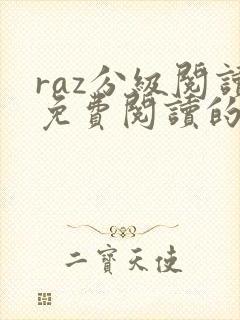 raz分級閱讀
免費閱讀的
二寶天使